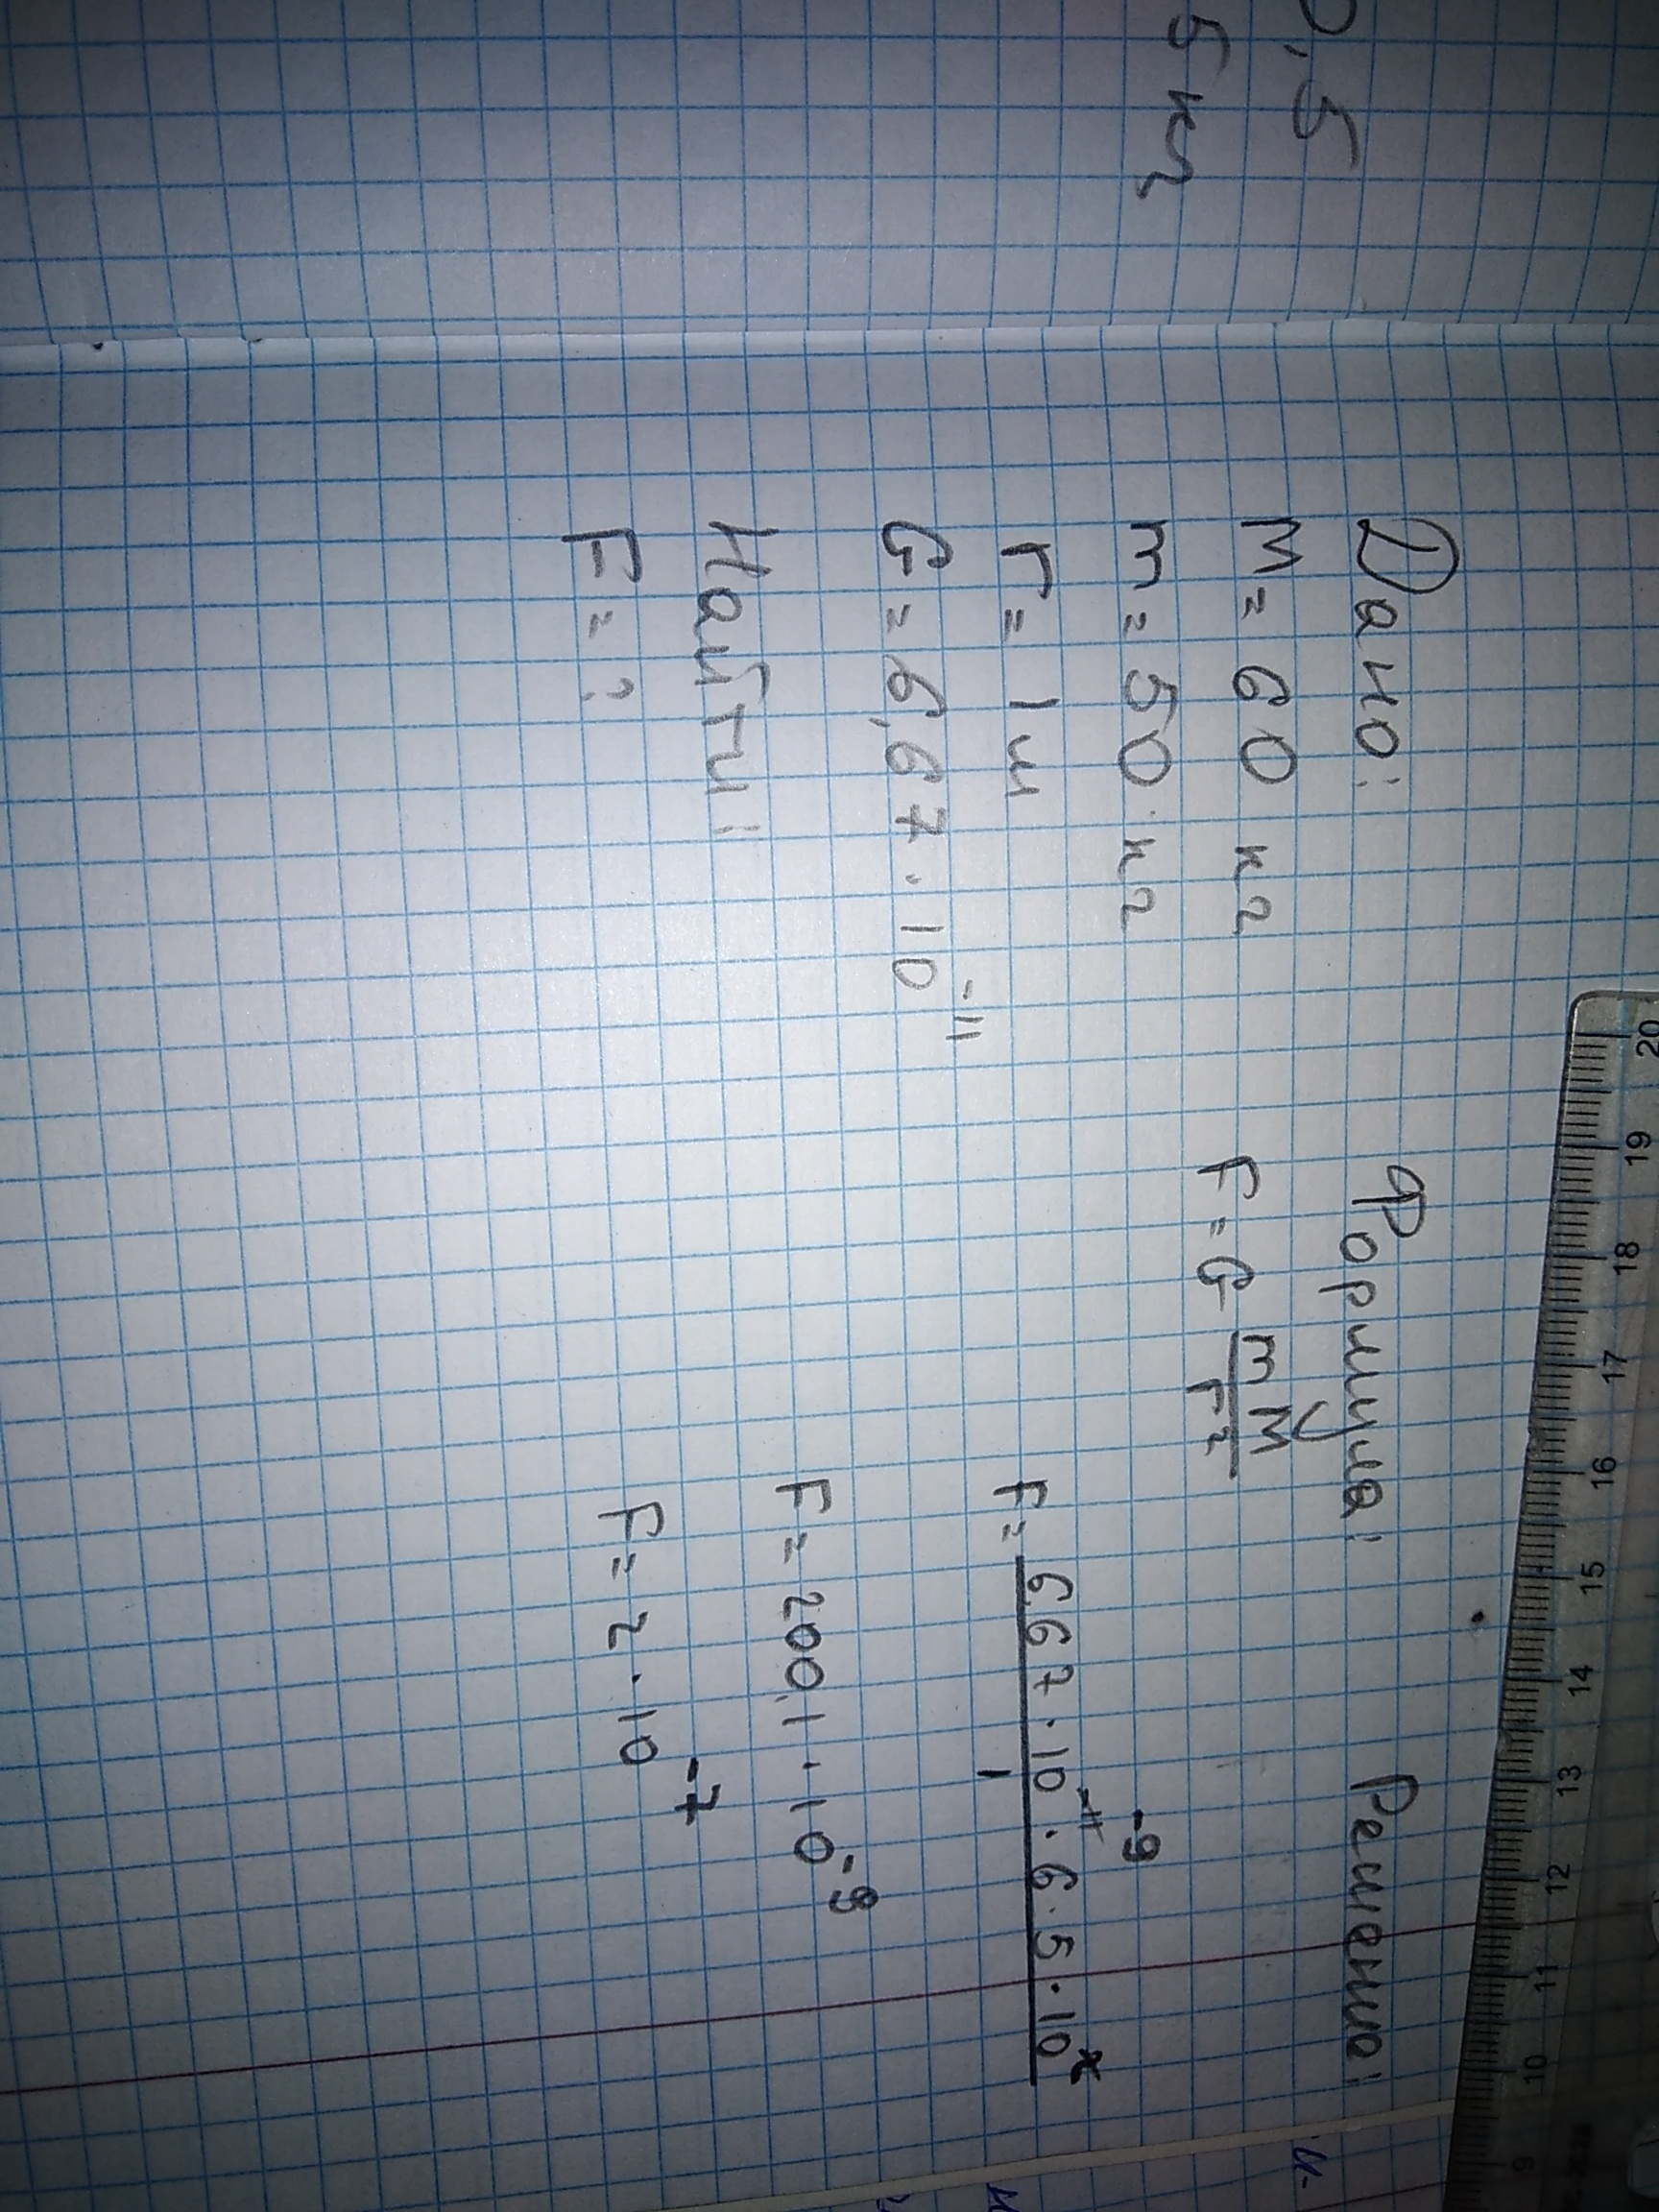 0,5
5 кг
Дано:
M = 60 кг
m = 50 кг
r = 1 м
G = 6,67 · 10⁻¹¹
Найти:
F = ?
Формула:
F = G mM/r²
Решению:
F = 6,67 · 10⁻¹¹ · 6 · 5 · 10²/1
-9
F = 200,1 · 10⁻⁹
F = 2 · 10⁻⁷
20 19 18 17 16 15 14 13 12 11 10 9